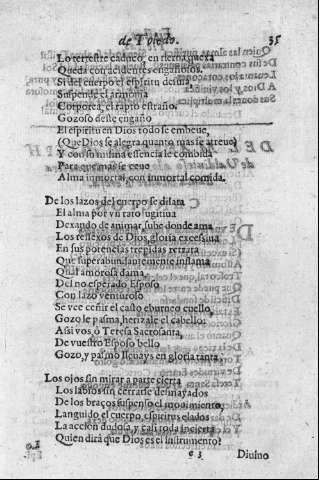 de Toledo. 35
Lo terrestre caduco, en tierra quexa
Queda con accidentes engañosos.
Si del cuerpo el espiritu desusa
Suspende el armonia
Corporea, el rapto estraño.
Gozoso deste engaño
El espiritu en Dios todo se embeue,
(Que Dios se alegra quanto mas se atreue)
Y con su diuina essencia le combida
Para que mas se ceue
Alma inmortal, con inmortal comida.
De los lazos del cuerpo se dilata
El alma por vn rato fugitiua
Dexando de animar, sube donde ama
Los reflexos de Dios, gloria excessiua
En sus potencias trepidas retrata
Que superabundantemente inflama
Qual amorosa dama
Del no esperado Esposo
Con lazo venturoso
Se vee ceñir el casto eburneo cuello,
Gozo le pasma, herizale el cabello:
Assi vos, ô Teresa Sacrosanta,
De vuestro Esposo bello
Gozo, y pasmo lleuays en gloria tanta,
Los ojos sin mirar a parte cierta
Los labios sin cerrarse desmayados
De los braços suspenso el mouimiento,
Languido el cuerpo, espiritus elados
La accion dudosa, y casi toda incierta
Quien dirà que Dios es el instrumento?
e 3 Diuino